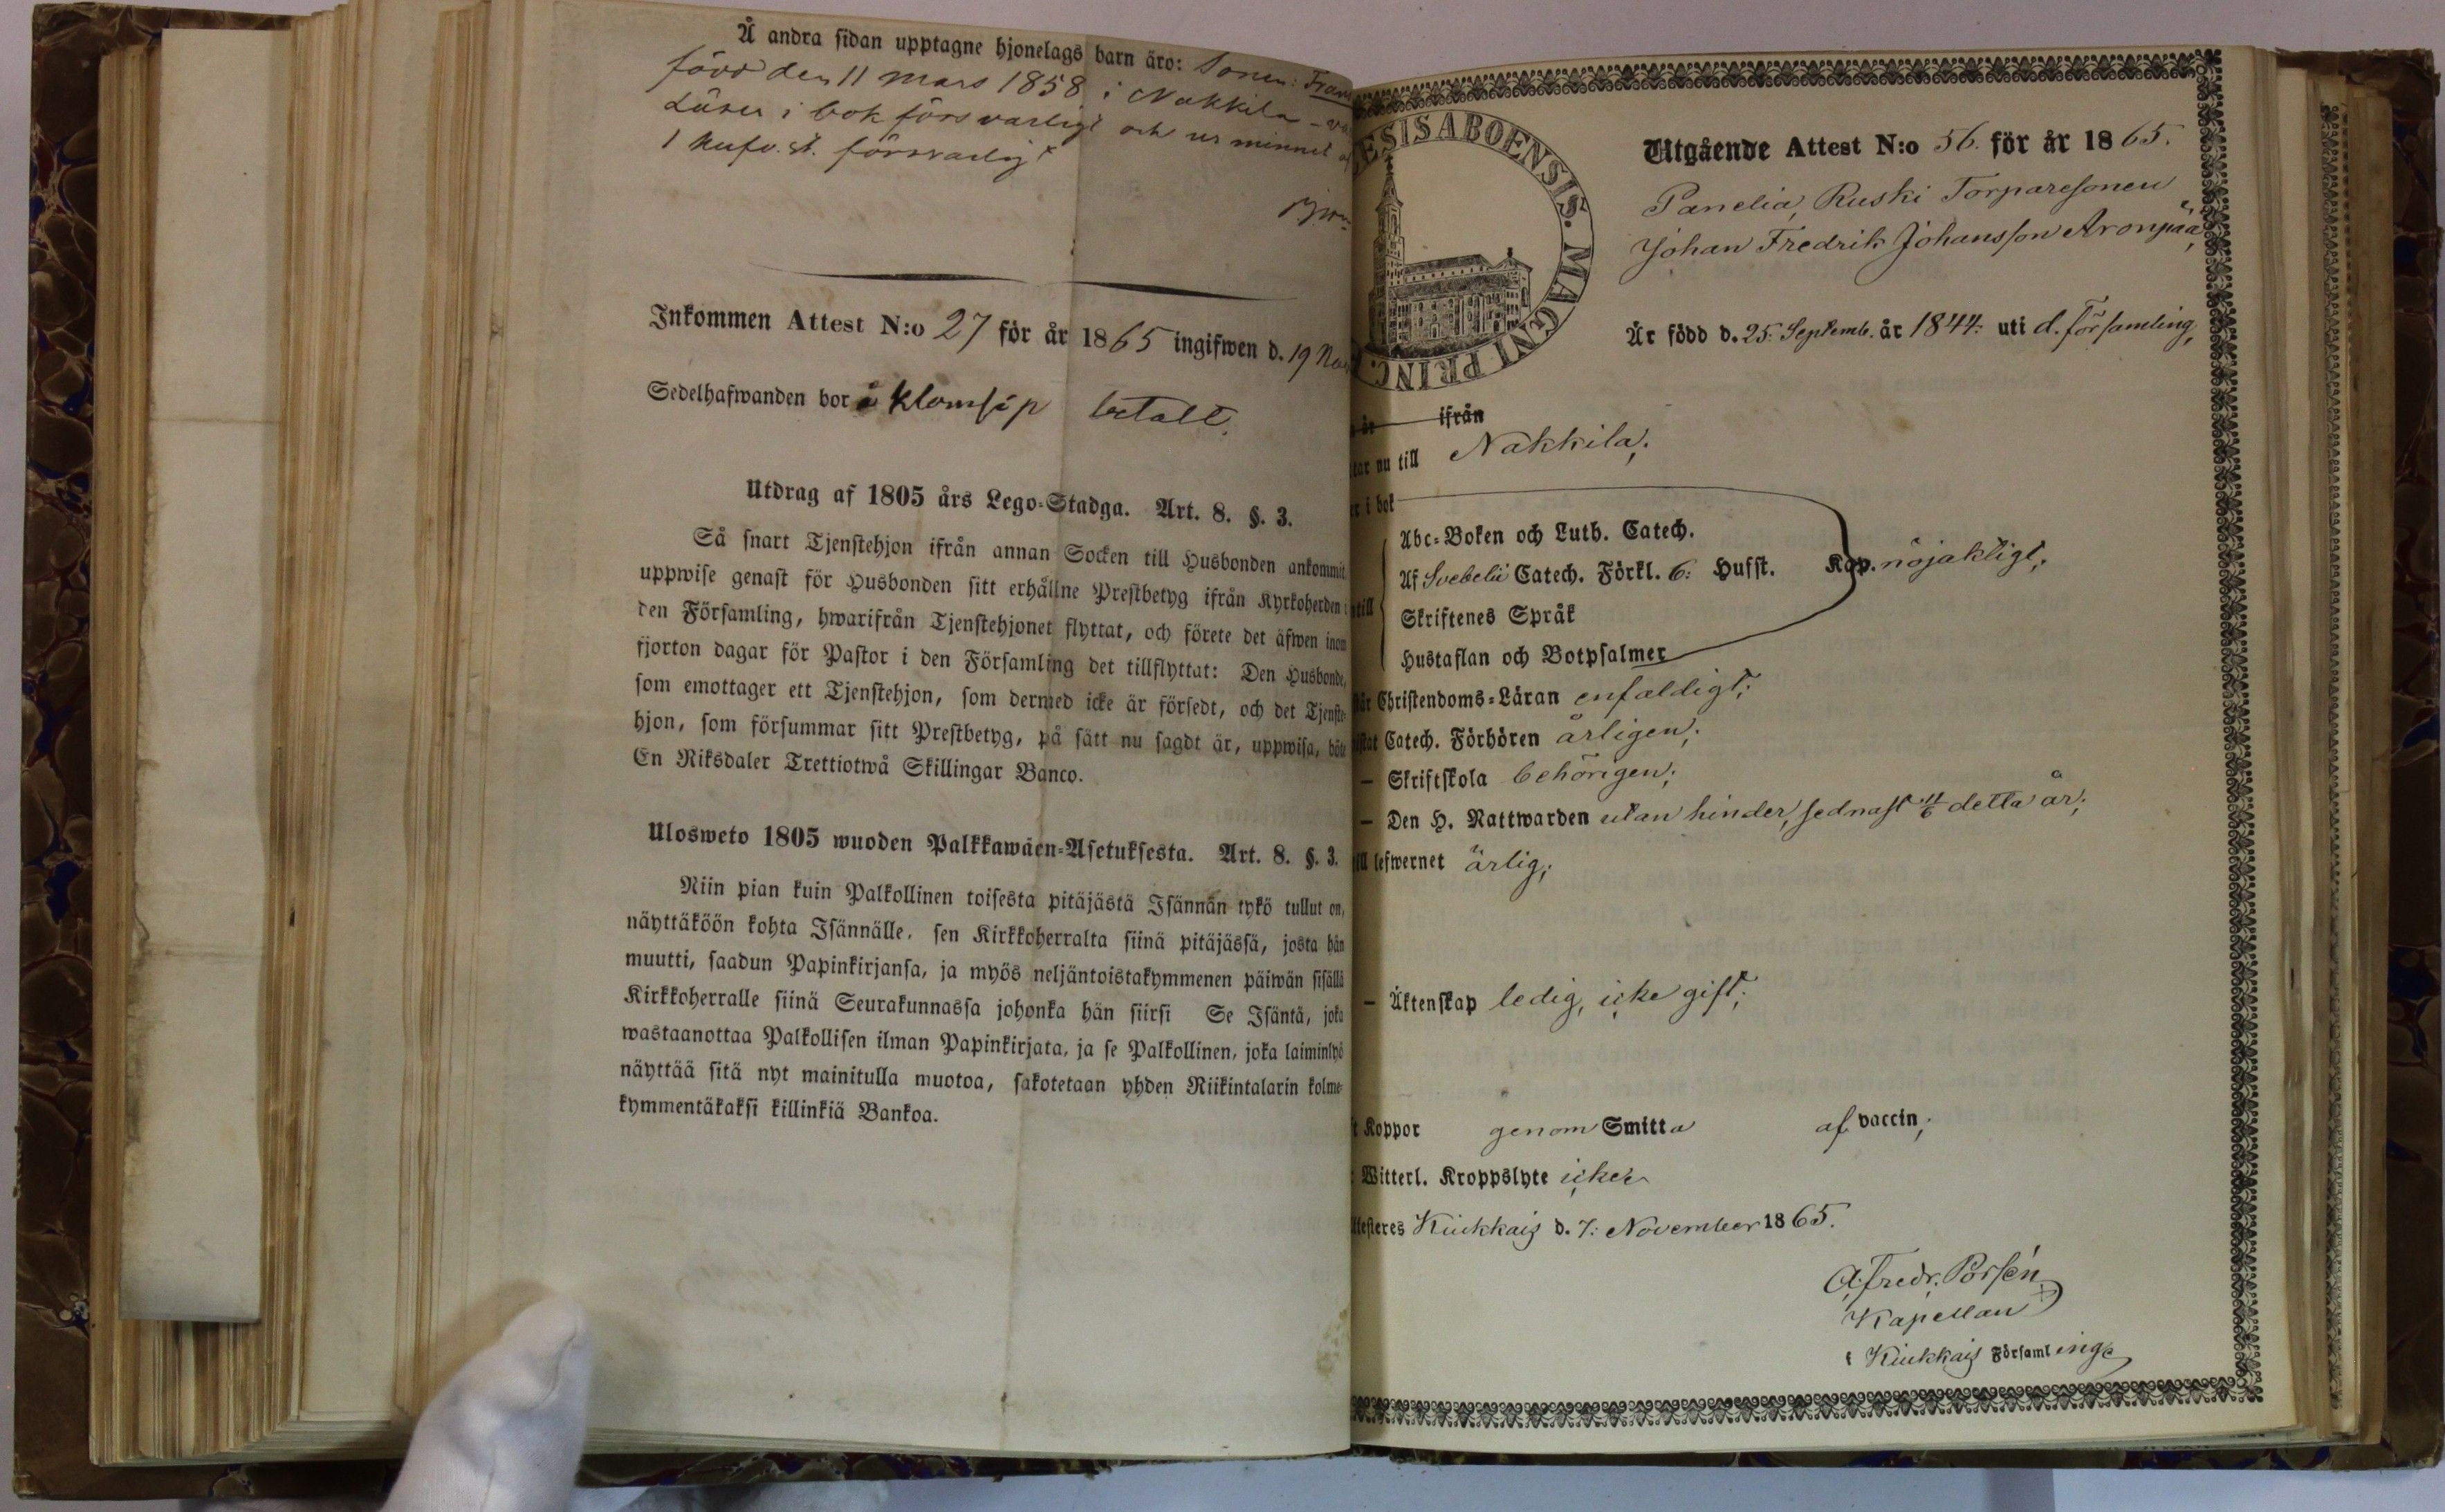 Å andra sidan upptagne hjonelags barn äro: Sonen: Frans
född den 11 mars 1858 i Nakkila
Läser i bok försvarligt och ur minnet af
1 Hufv. st. försvarligt
Inkommen Attest N:o 27 för år 1865 ingifwen d. 19 Nov
Sedelhafwanden bor å Klomsip betalt.
Utdrag af 1805 års Lego-Stadga. Art. 8. §. 3.
Så snart Tjenstehjon ifrån annan Socken till Husbonden ankommit
uppwise genast för Husbonden sitt erhållne Prestbetyg ifrån Kyrkoherden i
den Församling, hwarifrån Tjenstehjonet flyttat, och förete det äfwen inom
fjorton dagar för Pastor i den Församling det tillflyttat: Den Husbonde,
som emottager ett Tjenstehjon, som dermed icke är försedt, och det Tjenste-
hjon, som försummar sitt Prestbetyg, på sätt nu sagdt är, uppwisa, böte
En Riksdaler Trettiotwå Skillingar Banco.
Ulosweto 1805 wuoden Palkkawäen-Asetuksesta. Art. 8. §. 3.
Niin pian kuin Palkollinen toisesta pitäjästä Isännän tykö tullut on,
näyttäköön kohta Isännälle, sen Kirkkoherralta siinä pitäjässä, josta hän
muutti, saadun Papinkirjansa, ja myös neljäntoistakymmenen päiwän sisällä
Kirkkoherralle siinä Seurakunnassa johonka hän siirsi Se Isäntä, joka
wastaanottaa Palkollisen ilman Papinkirjata, ja se Palkollinen, joka laiminlyö
näyttää sitä nyt mainitulla muotoa, sakotetaan yhden Riikintalarin kolme-
kymmentäkaksi killinkiä Bankoa.
ESIS ABOENSIS. MAGNI PRINC.
Utgående Attest N:o 56. för år 1865.
Panelia, Ruski Torparesonen
Johan Fredrik Johansson Aronpää,
Är född d. 25: Septemb. år 1844: uti d. församling,
år ifrån
tar nu till Nakkila;
er i bok
Abc-Boken och Luth. Catech.
Af Svebelii Catech. Förkl. 6: Husst. Kap. nöjaktigt;
till Skriftenes Språk
Hustaflan och Botpsalmer
står Christendoms-Läran enfaldigt;
istat Catech. Förhören årligen;
— Skriftskola behörigen;
— Den H. Nattwarden utan hinder, sednast 11/6 detta år;
ill lefwernet ärlig;
— Äktenskap ledig, icke gift;
t Koppor genom Smitta af vaccin;
Witterl. Kroppslyte icke.
ttesteres Kiukkais d. 7: November 1865.
A. Fredr. Porsén
Kapellan
i Kiukkais Församlinge